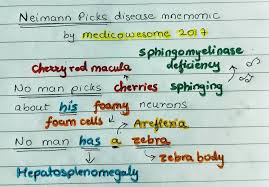 Neimann Picks disease mnemonic
by medicowesome 2017
sphingomyelinase
deficiency
cherry red macula
No man picks cherries sphinging
about his foamy neurons
foam cells Areflexia
No man has a zebra
zebra body
Hepatosplenomegaly